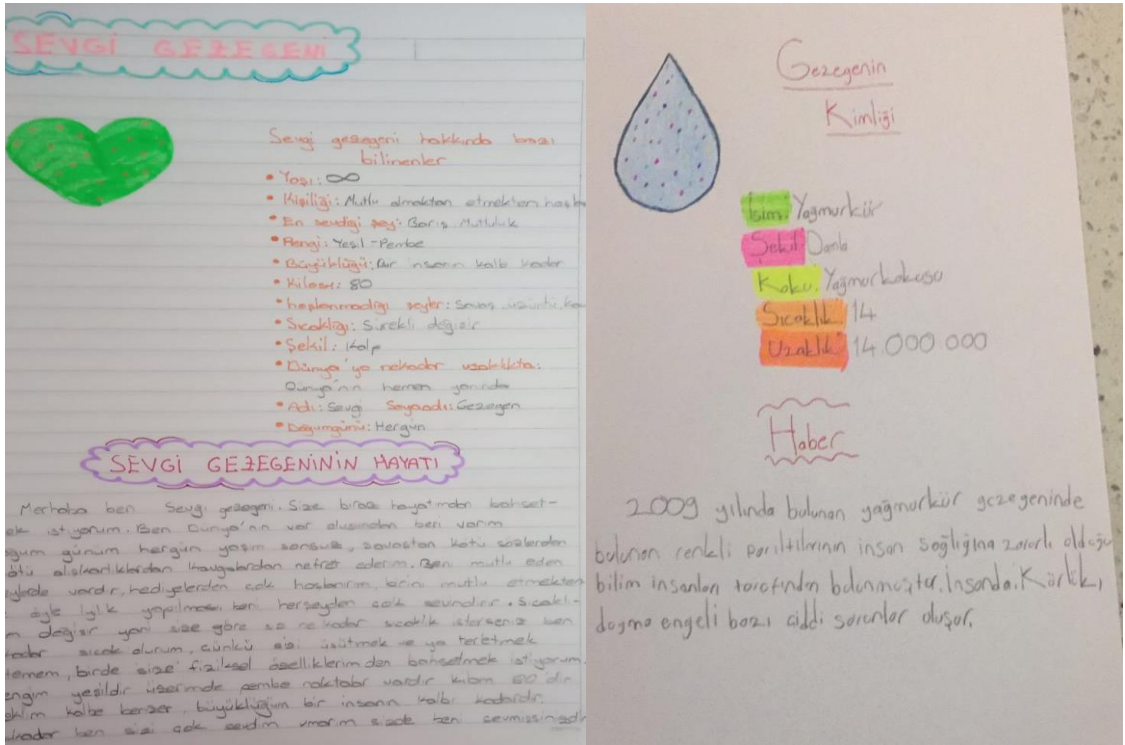 SEVGİ GEZEGENİ
Sevgi gezegeni hakkında bazı
bilinenler
• Yaşı: ∞
• Kişiliği: Mutlu olmaktan etmekten
• En sevdiği şey: Barış Mutluluk
• Rengi: Yeşil - Pembe
• Büyüklüğü: Bir insanın kalbi kadar
• Kilosu: 80
• hoşlanmadığı şeyler: Savaş üzüntü
• Sıcaklığı: Sürekli değişir
• Şekil: Kalp
• Dünya'ya nekadar uzaklıkta:
Dünya'nın hemen yanında
• Adı: Sevgi Soyaadı: Gezegen
• Doğumgünü: Hergün
SEVGİ GEZEGENİNİN HAYATI
Merhaba ben Sevgi gezegeni. Size biraz hayatımdan bahset-
istiyorum. Ben Dünya'nın var oluşundan beri varım
günüm hergün yaşım sonsuz, savaştan kötü sözlerden
alışkanlıklardan kavgalardan nefret ederim. Beni mutlu eden
vardır, hediyelerden çok hoşlanırım, birini mutlu etmekten
öyle iyilik yapılması beni herşeyden çok sevindirir. Sıcaklı-
değişir yani size göre siz ne kadar sıcaklık isterseniz ben
kadar sıcak olurum, çünkü sizi üşütmek ve ya terletmek
birde size fiziksel özelliklerimden bahsetmek istiyorum.
yeşildir üzerimde pembe noktalar vardır kilom 80'dir
kalbe benzer, büyüklüğüm bir insanın kalbi kadardır.
ben sizi çok sevdim umarım sizde beni
Gezegenin
Kimliği
İsim: Yağmurkür
Şekil: Damla
Koku: Yağmurkokusu
Sıcaklık: 14
Uzaklık: 14.000.000
Haber
2009 yılında bulunan yağmurkür gezegeninde
bulunan renkli parıltılırının insan sağlığına zararlı olduğu
bilim insanları tarafından bulunmuştur. İnsanda. Körlük,
duyma engeli bazı ciddi sorunlar oluşur.